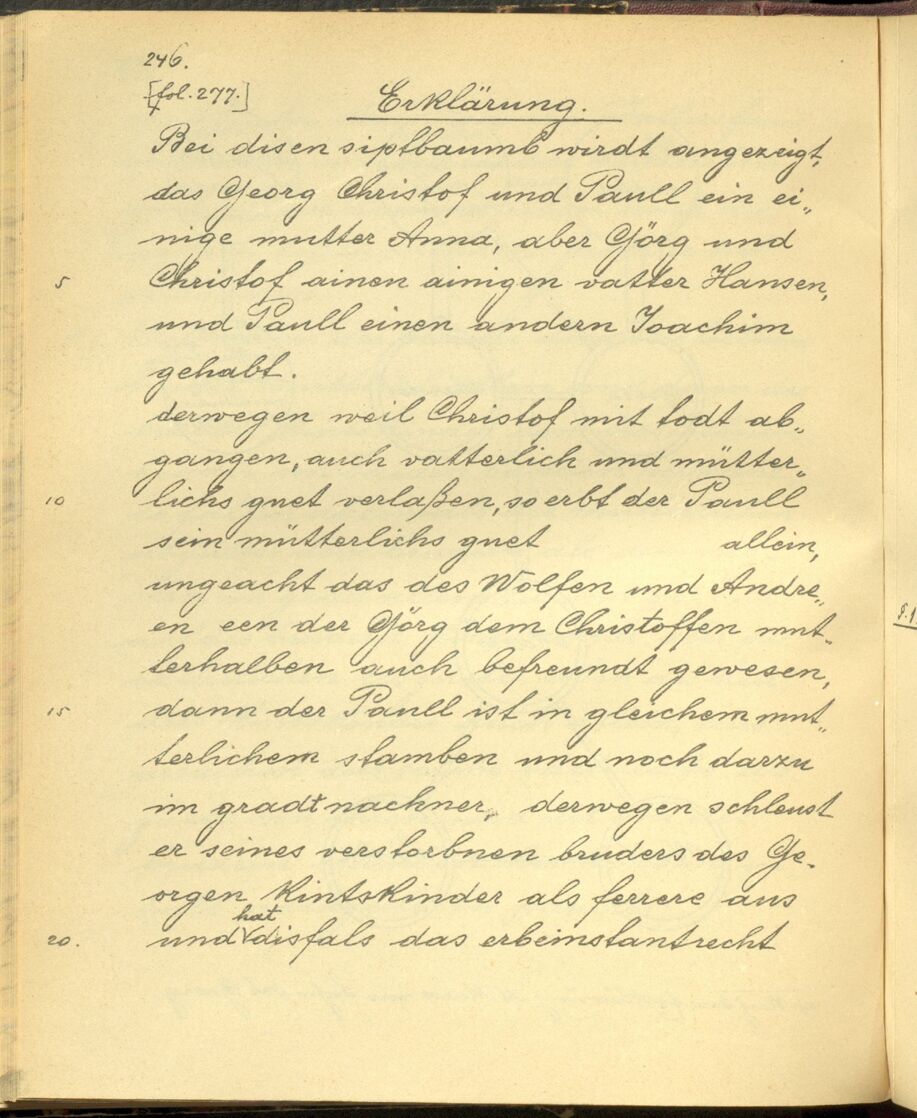 246.
[fol. 277.]
Erklärung.
Bei disen siptbaumb wirdt angezeigt,
das Georg Christof und Paull ein ei„
nige mutter Anna, aber Görg und
5 Christof ainen ainigen vatter Hansen,
und Paull einen andern Joachim
gehabt.
derwegen weil Christof mit todt ab„
gangen, auch vatterlich und mütter„
10 lichs guet verlaßen, so erbt der Paull
sein mütterlichs guet allein,
ungeacht das des Wolfen und Andre„
en een der Görg dem Christoffen mut„
terhalben auch befreundt gewesen,
15 dann der Paull ist in gleichem mut„
terlichem stamben und noch darzu
im gradt nachner, derwegen schleust
er seines verstorbnen bruders des Ge„
orgen Kintskinder als ferrere aus
20. und hat disfals das erbeinstantrecht